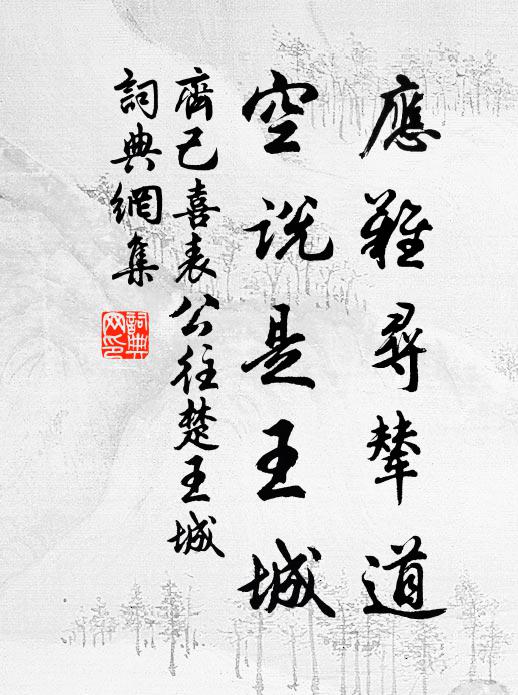 應難尋輦道
空说是王城
齊己喜表公往楚王城
詞典網集
詞典网印